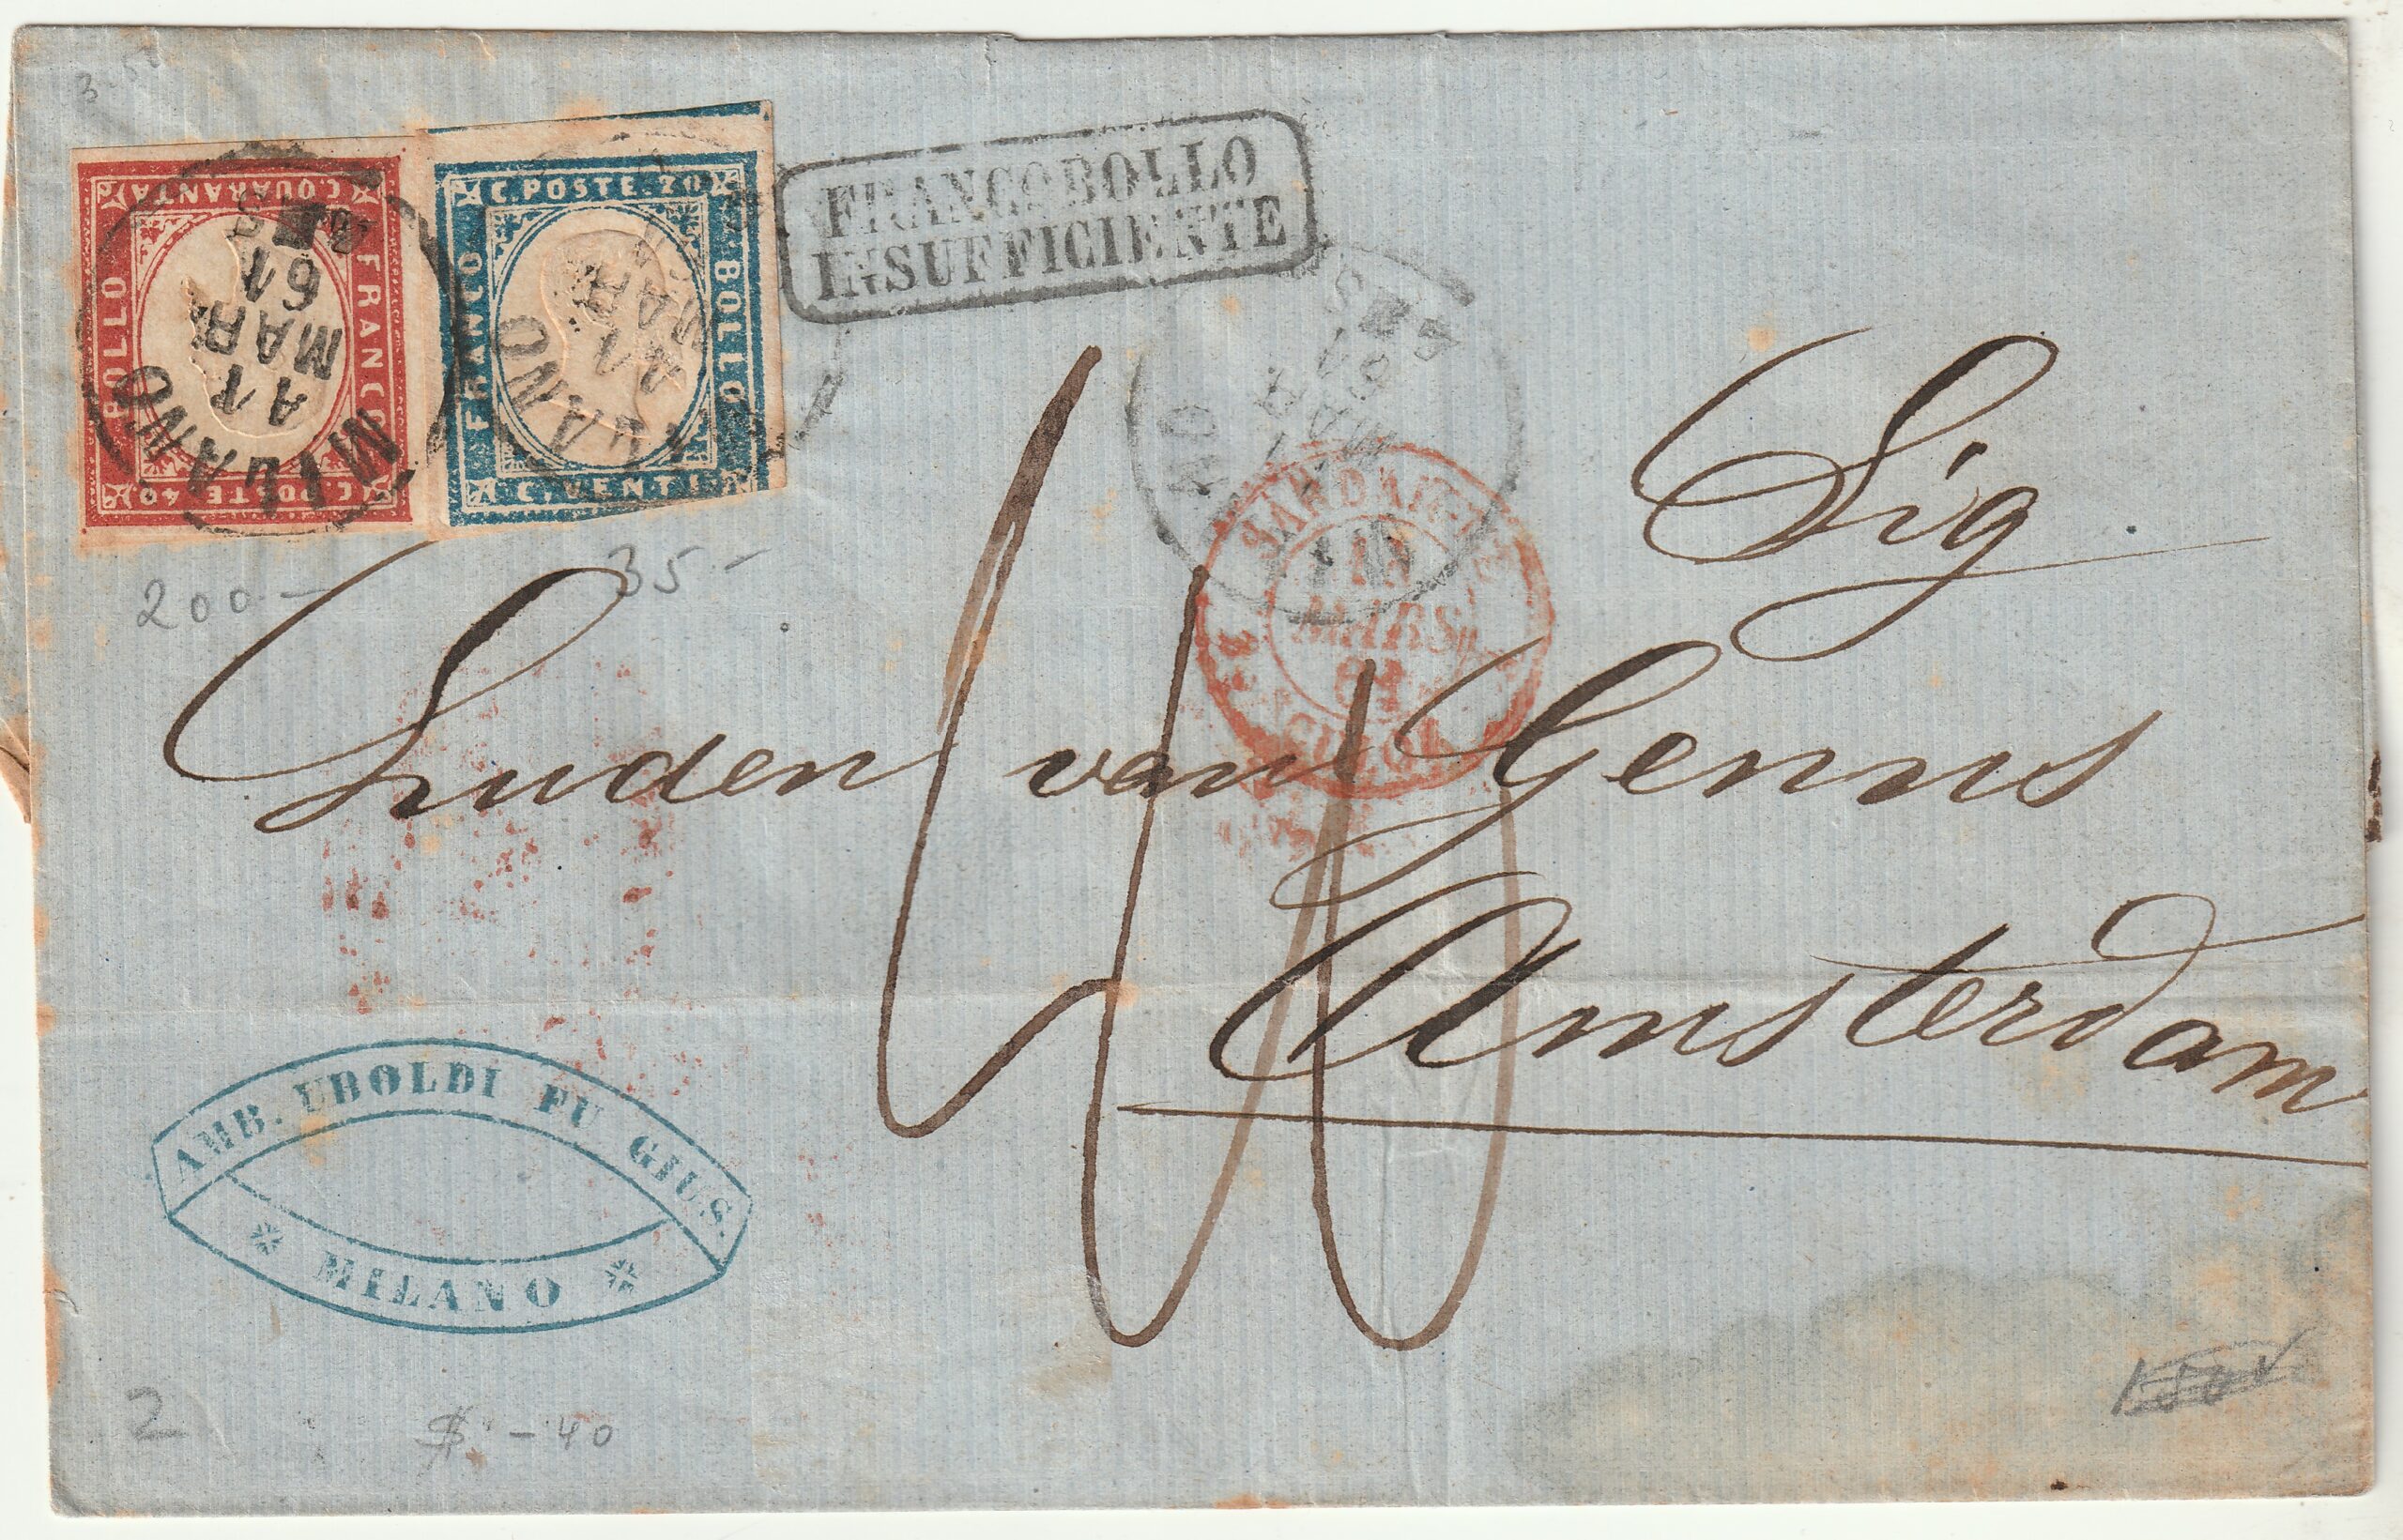 C. QUARANTA
FRANCO
BOLLO
C. POSTE 40
MILANO
11
MAR
61
C. POSTE. 20
FRANCO
BOLLO
C. VENTI
MILANO
11
MAR
FRANCOBOLLO
INSUFFICIENTE
MAR
61
MARS
61
200-
35-
40
Sig
Luden van Genns
Amsterdam
AMB. UBOLDI FU GIUS.
MILANO
2
$ - 40